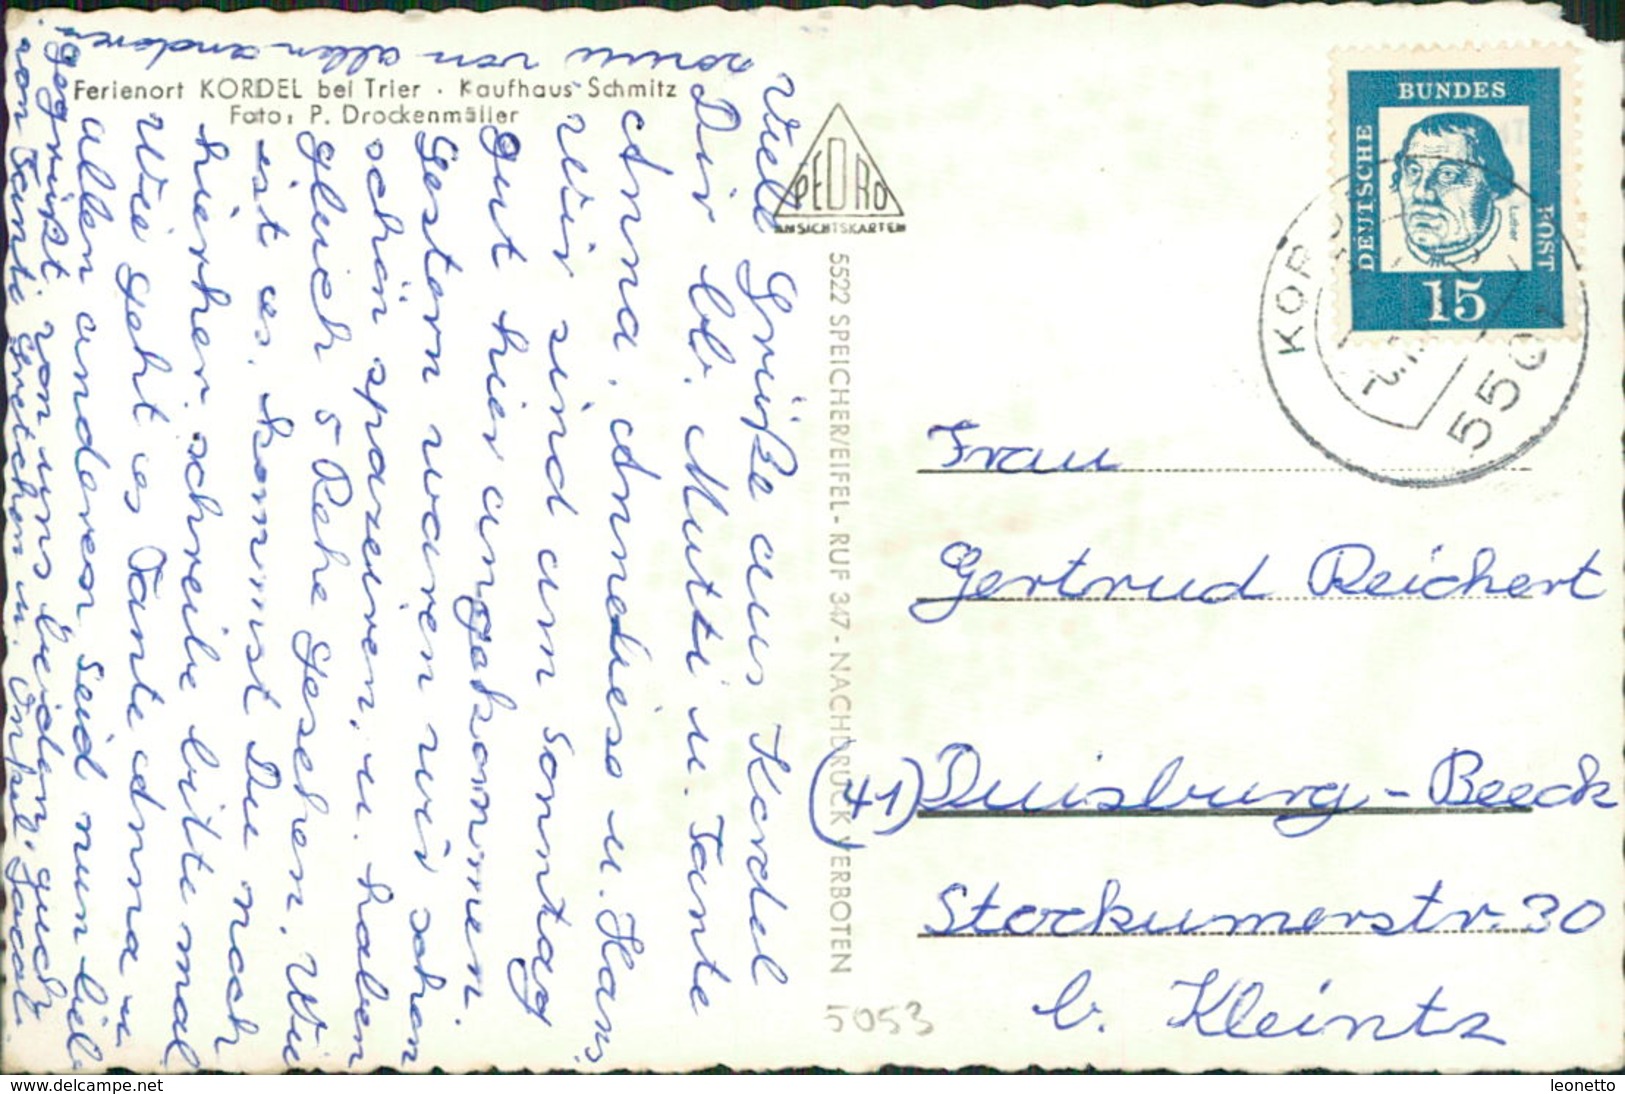 Ferienort KORDEL bei Trier · Kaufhaus Schmitz
Foto: P. Drockenmüller
PEDRO
ANSICHTSKARTEN
5522 SPEICHER/EIFEL - RUF 347 - NACHDRUCK VERBOTEN
Viele Grüße aus Kordel
Dir lb. Mutti u. Tante
Anna, Anneliese u. Hans
Wir sind am Sonntag
gut hier angekommen.
Gestern waren wir schon
schön spazieren, u. haben
gleich 5 Rehe gesehen. Wie
ist es, kommst Du nach
hierher, schreibe bitte mal
Wie geht es Tante Anna u
allen anderen Seid nun viel-
gegrüßt von uns beiden, auch
von Tante Gretchen u. Onkel Jacob.
sowie von allen anderen
DEUTSCHE
BUNDES
POST
Luther
15
KORDEL
550
Frau
Gertrud Reichert
(41) Duisburg-Beeck
Stockumerstr. 30
b. Kleintz
5053
www.delcampe.net
leonetto